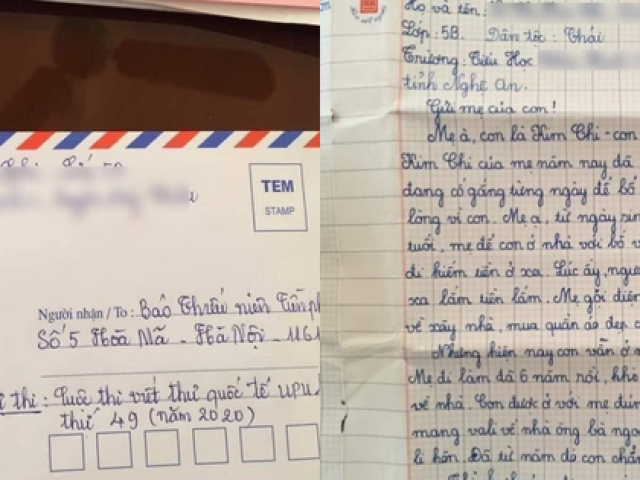 TEM
STAMP
Người nhận / To: Báo Thiếu niên Tiền
Số 5 Hoà Mã - Hà Nội - 1161
thi: Cuộc thi viết thư quốc tế UPU
thứ 49 (năm 2020)
Họ và tên:
Lớp: 5B. Dân tộc: Thái
Trường: Tiểu Học
tỉnh Nghệ An.
Gửi mẹ của con!
Mẹ à, con là Kim Chi - con
Kim Chi của mẹ năm nay đã
đang cố gắng từng ngày để bố
lòng vì con. Mẹ ạ, từ ngày
tuổi, mẹ để con ở nhà với bố
đi kiếm tiền ở xa. Lúc ấy,
xa lắm tiền lắm. Mẹ gởi
về xây nhà, mua quần áo đẹp
Nhưng hiện nay con vẫn ở
Mẹ đi làm đã 6 năm rồi,
về nhà. Con được ở với mẹ
mang vali về nhà ông bà
li hôn. Đã từ năm đó con